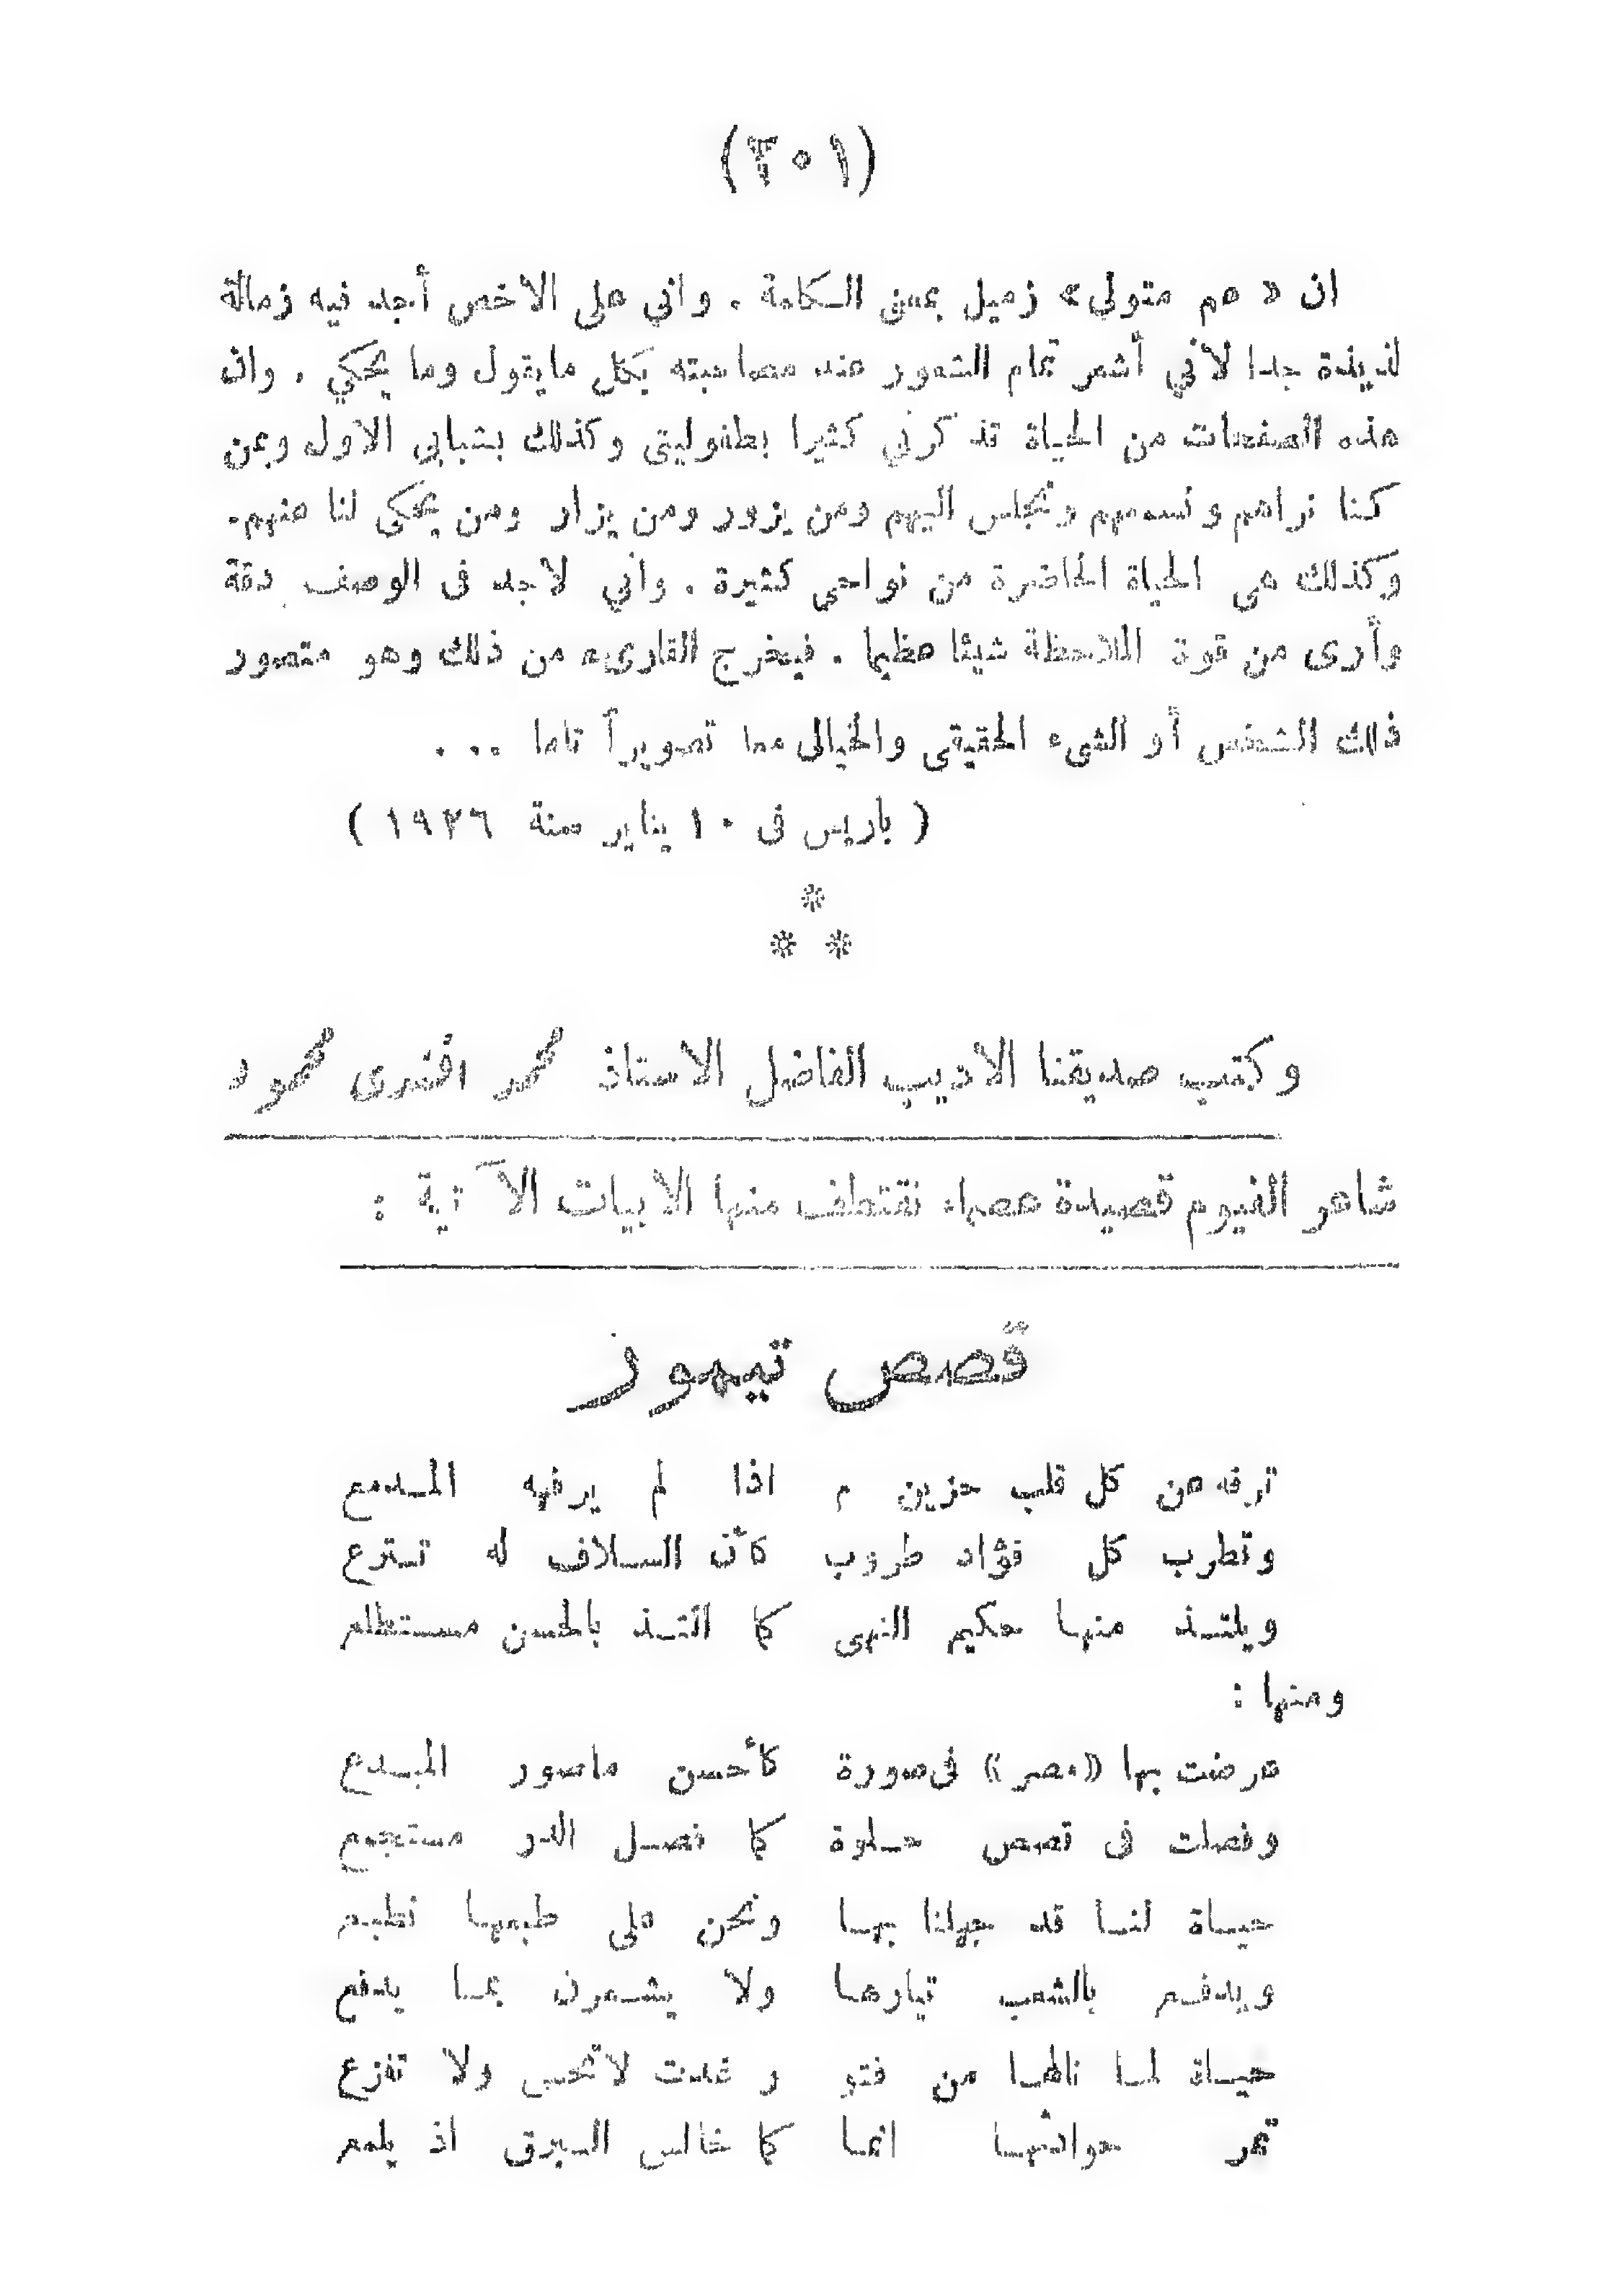 (٣٠١)
ان « عم متولى » زميل بمعنى الكلمة . واني على الاخص أجد فيه زمالة
لذيذة جدا لأني أشعر تمام الشعور عند مصاحبته بكل مايقول وما يحكي . وان
هذه الصفحات من الحياة تذكرني كثيرا بطفوليتى وكذلك بشبابى الاول وبمن
كنا نراهم ونسمعهم ونجلس اليهم ومن يزور ومن يزار ومن يحكى لنا عنهم.
وكذلك هى الحياة الحاضرة من نواحى كثيرة . واني لاجد فى الوصف دقة
وأرى من قوة الملاحظة شيئا عظيما . فيخرج القارىء من ذلك وهو متصور
ذلك الشخص أو الشىء الحقيقى والخيالى معا تصويراً تاما ...
( باريس فى ١٠ يناير سنة ١٩٢٦ )
*
* *
وكتب صديقنا الاديب الفاضل الاستاذ محمد افندى محمود
شاعر الفيوم قصيدة عصماء نقتطف منها الابيات الآتية :
قصص تيمور
ترفه عن كل قلب حزين م اذا لم يرفهه المدمع
وتطرب كل فؤاد طروب كأن السلاف له تترع
ويلتذ منها حكيم النهى كما التذ بالحسن مستطلع
ومنها :
عرضت بها «مصر» فى صورة كأحسن ماصور المبدع
وفصلت فى قصص حلوة كما فصل الدر مستجمع
حياة لنا قد جهلنا بها ونحن على طبعها نطبع
ويدفع بالشعب تيارها ولا يشعرن بما يدفع
حياة لما نالها من فتو ر غدت لاتحس ولا تفزع
تمر حوادثها انما كما خالس البرق اذ يلمع